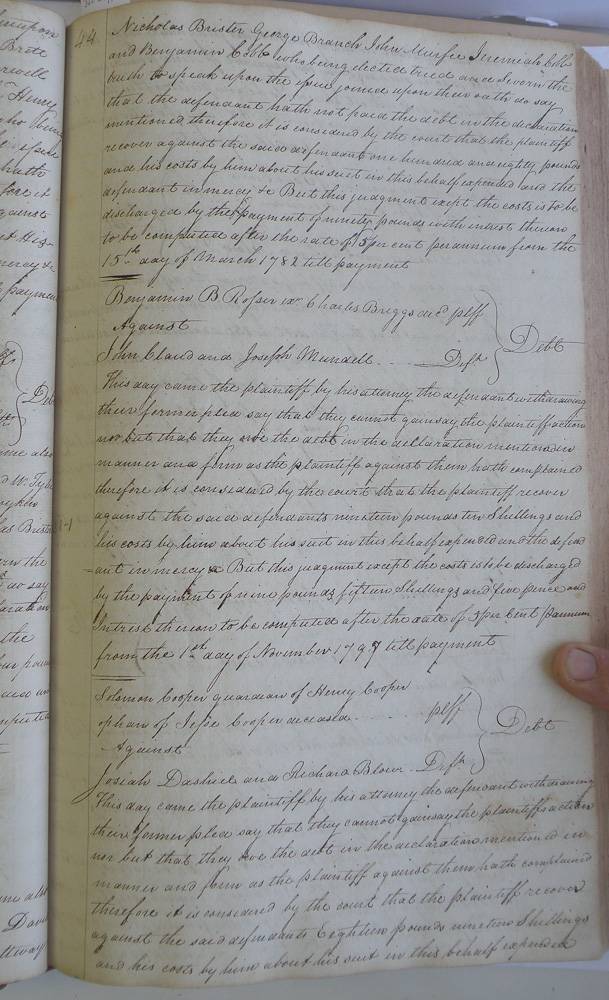 44
Nicholas Brister George Branch John Murfee Jeremiah Cobb
and Benjamin Cobb who being elected tried and Sworn the
truth to speak upon the issue joined upon their oath do say
that the defendant hath not paid the debt in the declaration
mentioned therefore it is considered by the court that the plaintiff
recover against the said defendant one hundred and eighty pounds
and his costs by him about his suit in this behalf expended and the
defendant in mercy &c But this judgment exept the costs is to be
discharged by the payment of ninety pounds with interest thereon
to be computed after the rate of 5 per cent per annum from the
15th day of March 1782 till payment
Benjamin B Rosser exr Charles Briggs decd plff
Against
Debt
John Claud and Joseph Mundell Defts
This day came the plaintiff by his attorney the defendant withdrawing
their former plea say that they cannot gainsay the plaintiff action
nor but that they owe the debt in the declaration mentioned in
manner and form as the plaintiff against them hath complained
therefore it is considered by the court that the plaintiff recover
against the said defendants nineteen pounds ten Shillings and
his costs by him about his suit in this behalf expended and the defend
=ant in mercy &c But this judgment except the costs is to be discharged
by the payment of nine pounds fifteen Shillings and five pence and
Intrest thereon to be computed after the rate of 5 per Cent Pannum
from the 1st day of November 1797 till payment
Solomon Cooper guardian of Henry Cooper
ophan of Jesse Cooper deceased plff
Debt
Against
Josiah Dashiel and Richard Blow Defts
This day came the plaintiff by his attorney the defendant withdrawing
their former plea say that they cannot gainsay the plaintiffs action
nor but that they owe the debt in the declaration mentioned in
manner and form as the plaintiff against them hath complained
therefore it is considered by the court that the plaintiff recover
against the said defendants Eighteen pounds nineteen Shillings
and his costs by him about his suit in this behalf expended